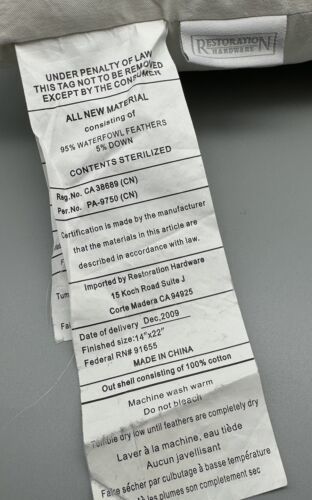 RESTORATION
HARDWARE
UNDER PENALTY OF LAW
THIS TAG NOT TO BE REMOVED
EXCEPT BY THE CONSUMER
ALL NEW MATERIAL
consisting of
95% WATERFOWL FEATHERS
5% DOWN
CONTENTS STERILIZED
Reg.No. CA 38689 (CN)
Per.No. PA-9750 (CN)
Certification is made by the manufacturer
that the materials in this article are
described in accordance with law.
Imported by Restoration Hardware
15 Koch Road Suite J
Corte Madera CA 94925
Date of delivery Dec,2009
Finished size:14"x22"
Federal RN# 91655
MADE IN CHINA
Out shell consisting of 100% cotton
Machine wash warm
Do not bleach
Tumble dry low until feathers are completely dry
Laver à la machine, eau tiède
Aucun javellisant
Faire sécher par culbutage à basse température
les plumes soient complètement sec